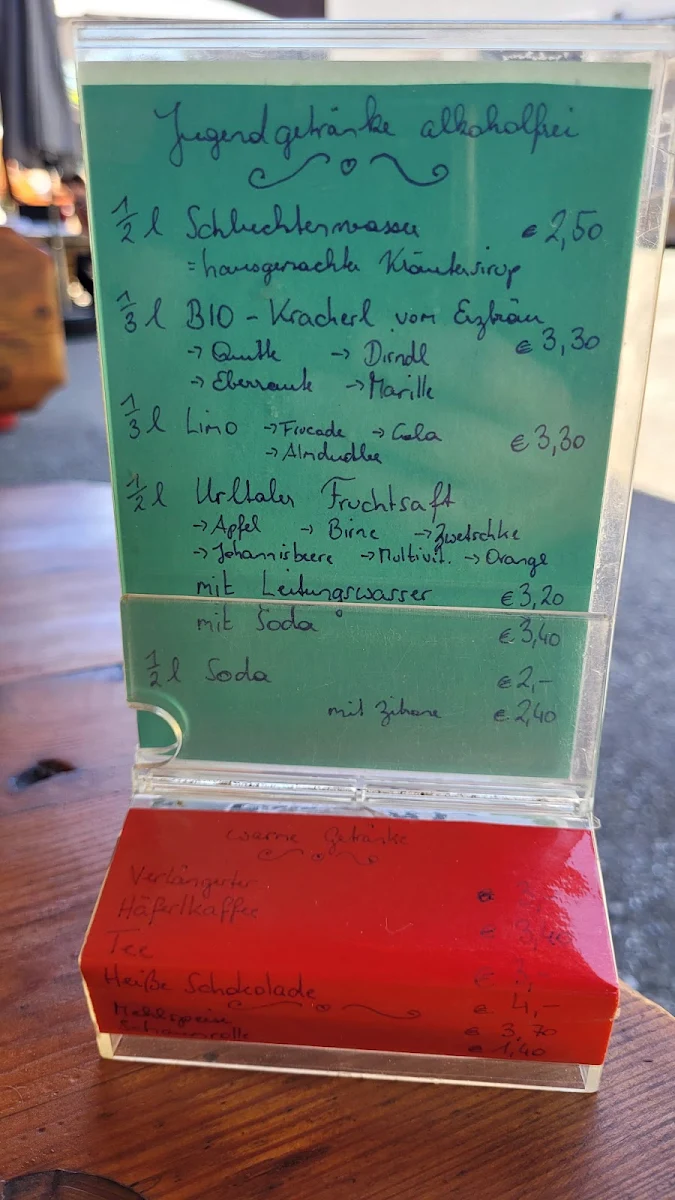 Jugendgetränke alkoholfrei
1/2 l Schluchtenwasser € 2,50
= hausgemachter Kräutersirup
1/3 l BIO - Kracherl vom Erzbräu € 3,30
→ Quitte → Dirndl
→ Eberraute → Marille
1/3 l Limo → Frucade → Cola € 3,30
→ Almdudler
1/2 l Urltaler Fruchtsaft
→ Apfel → Birne → Zwetschke
→ Johannisbeere → Multivit. → Orange
mit Leitungswasser € 3,20
mit Soda € 3,40
1/2 l Soda € 2,-
mit Zitrone € 2,40
warme Getränke
Verlängerter €
Häferlkaffee € 3,40
Tee €
Heiße Schokolade € 4,-
Mehlspeise € 3,70
Schaumrolle € 1,40